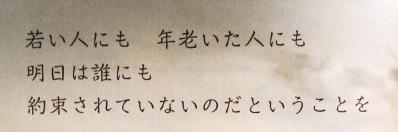 若い人にも　年老いた人にも
明日は誰にも
約束されていないのだということを